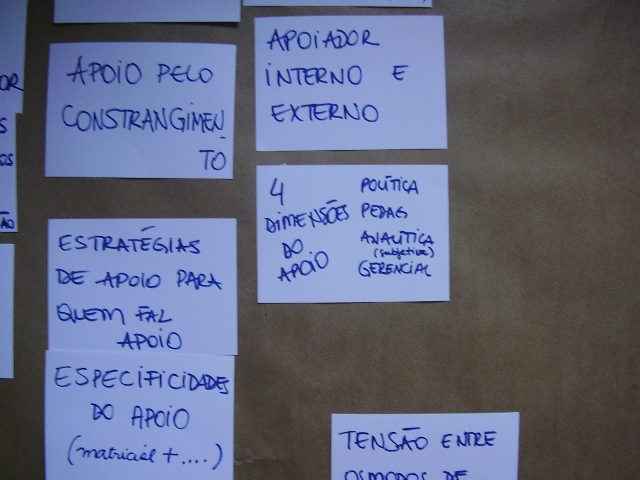 OR
S
OS
ÃO
APOIO PELO
CONSTRANGIMEN-
TO
APOIADOR
INTERNO E
EXTERNO
4
DIMENSÕES
DO
APOIO
POLÍTICA
PEDAG
ANALÍTICA
(subjetiva)
GERENCIAL
ESTRATÉGIAS
DE APOIO PARA
QUEM FAL
APOIO
ESPECIFICIDADES
DO APOIO
(matricial + ....)
TENSÃO ENTRE
OS MODOS DE